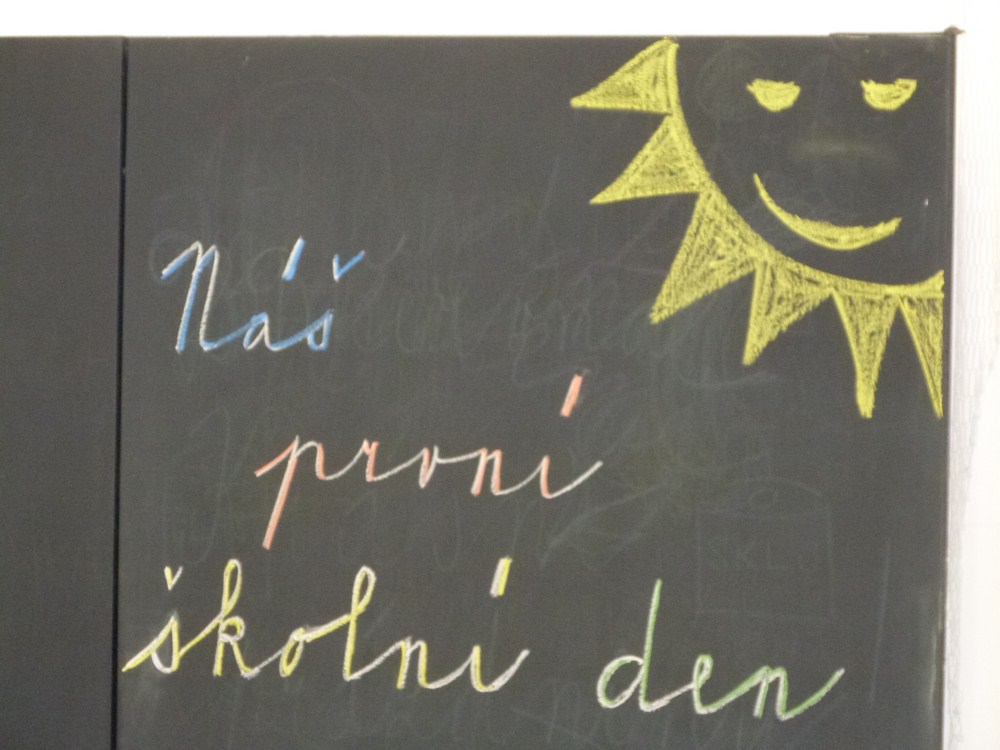 Náš
první
školní den